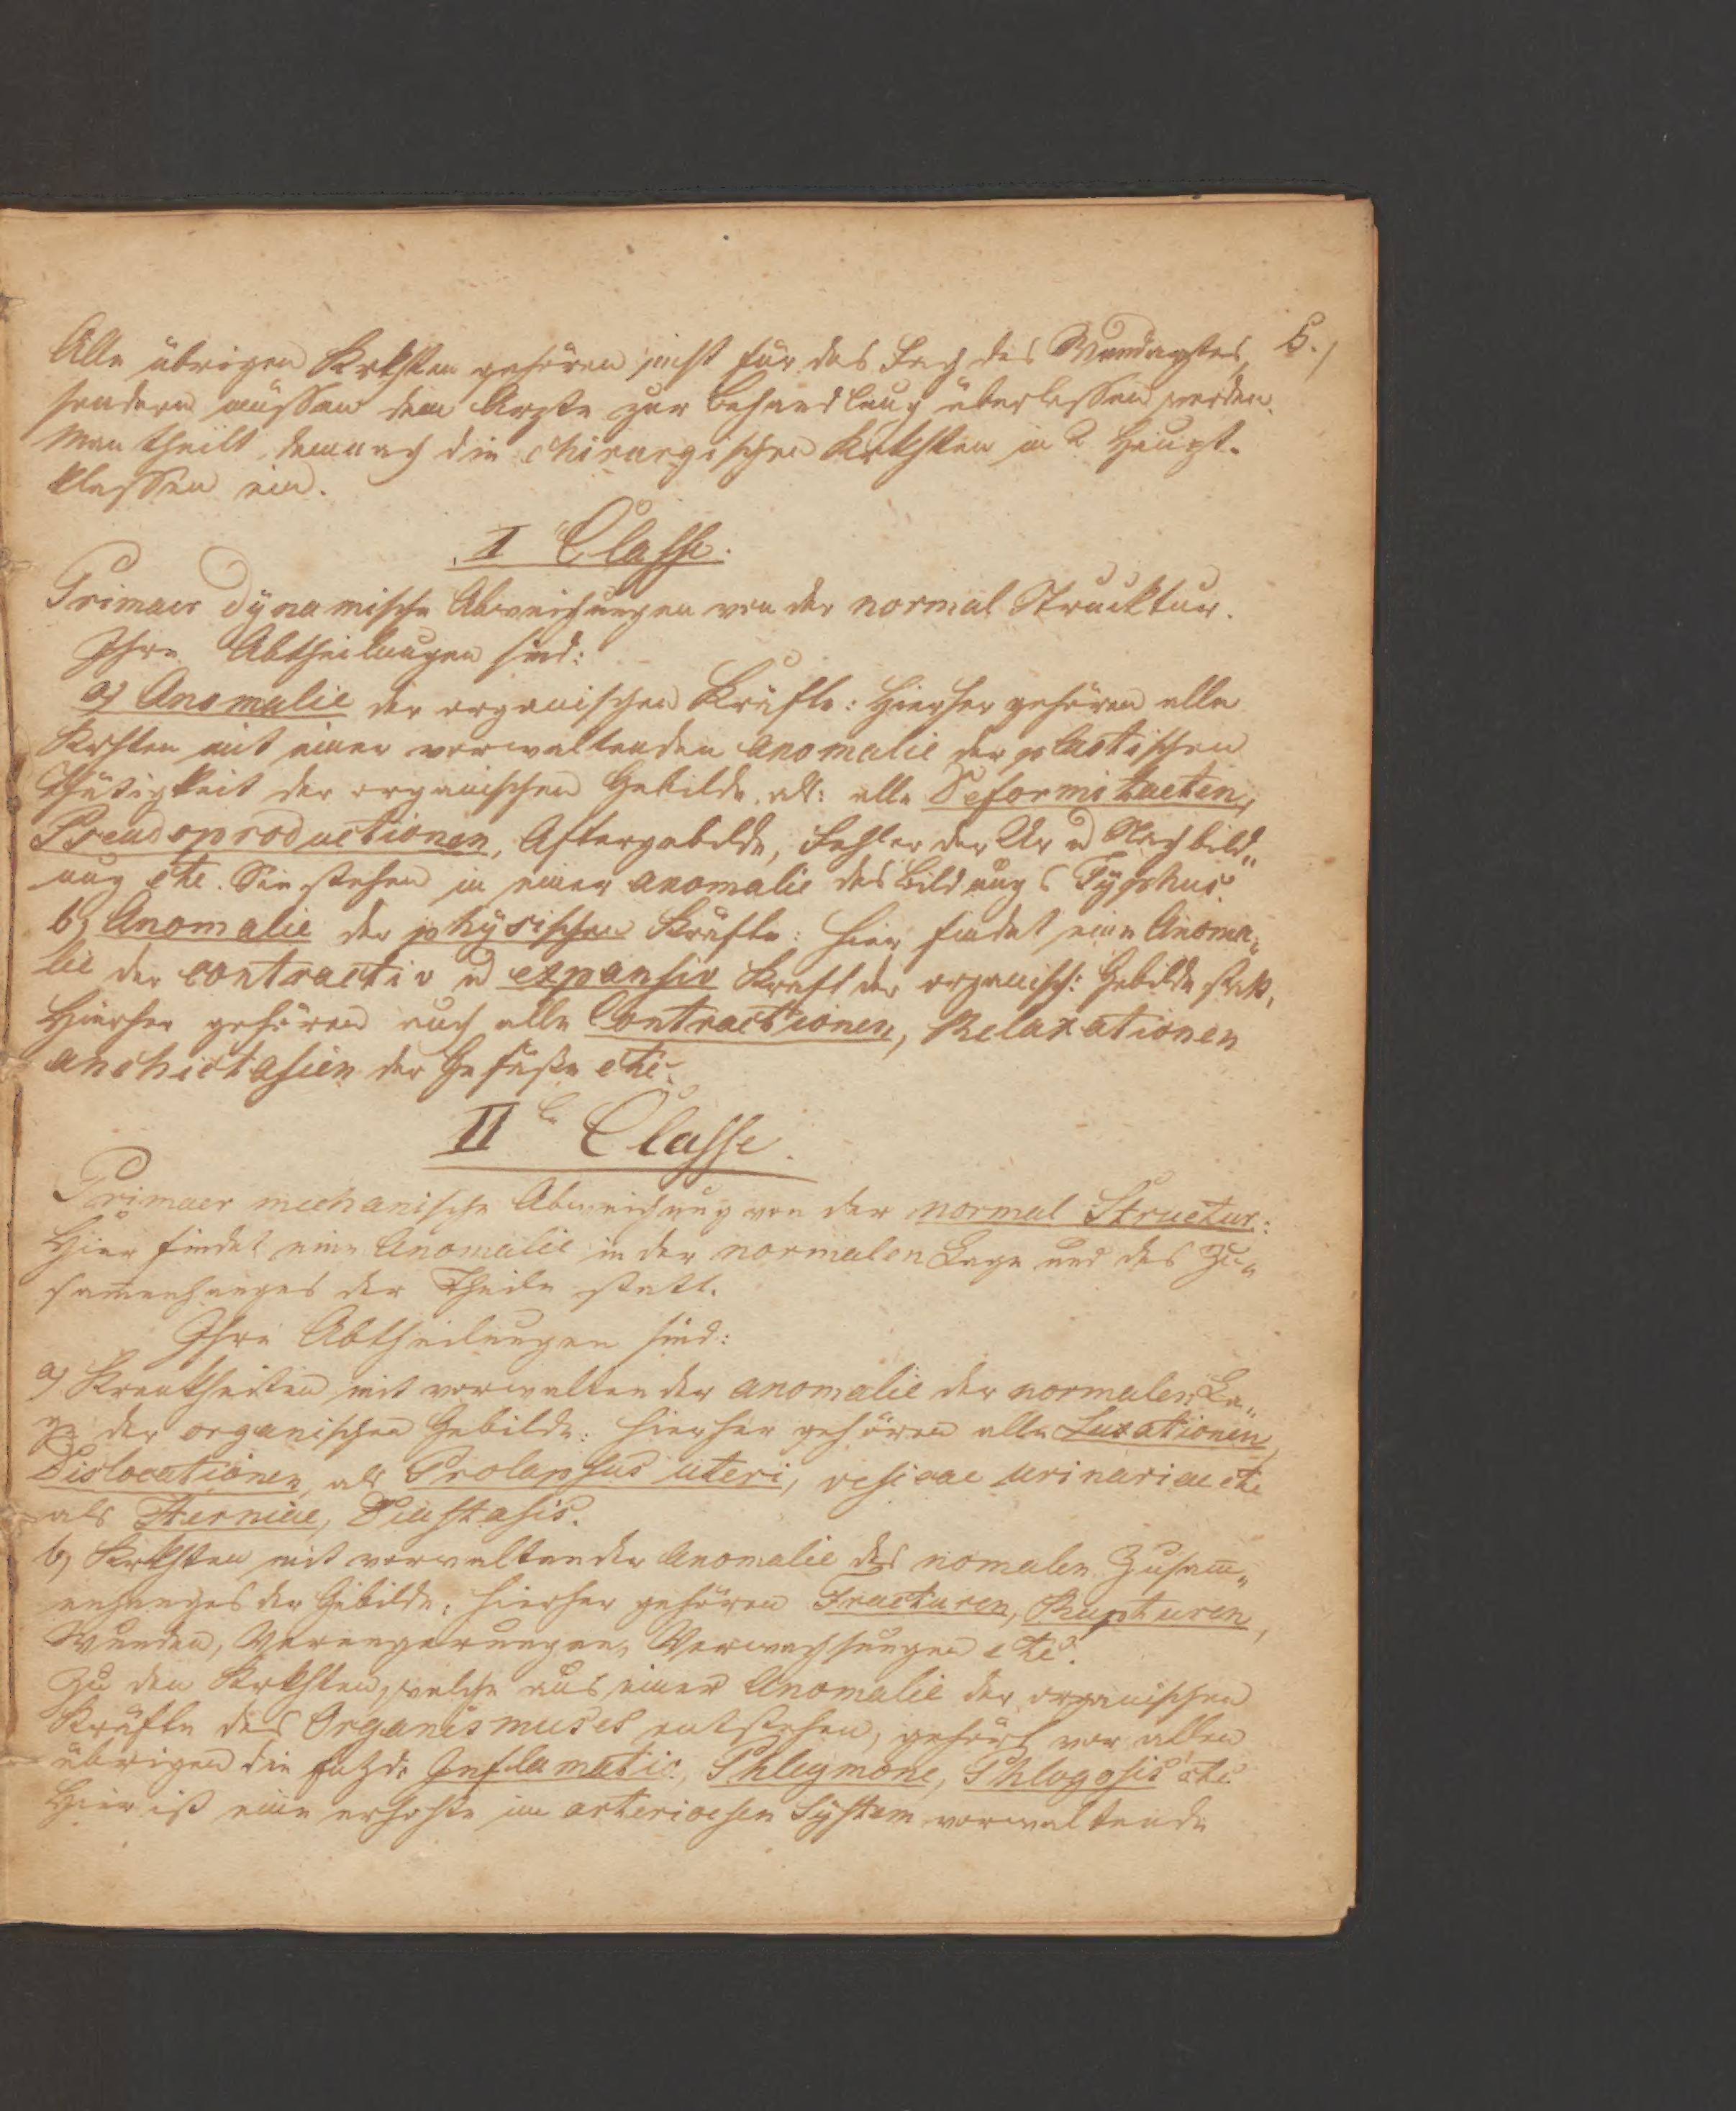 5./
Alle übrigen Krkhten gehören nicht für das Fach des Wundarztes,
sondern müssen dem Arzte zur Behandlung überlassen werden.
Man theilt demnach die chirurgischen Krkhten in 2 Haupt-
klassen ein.
I Classe.
Primaer dÿnamische Abweichungen von der normal Strucktur.
Ihre Abtheilungen sind:
a) Anomalie der organischen Kräfte: Hierher gehören alle
Krhten mit einer vorwaltenden Anomalie der plastischen
Thätigkeit der organischen Gebilde, als: alle Deformitaeten,
Pseudoproductionen, Aftergebilde, Fehler der Ur u Nachbild„
ung etc. Sie stehen in einer anomalie des Bildungs Tÿphus.
b) Anomalie der phÿsischen Kräfte: Hier findet eine Anoma„
lie der contractiv u expansiv Kraft der organisch: Gebilde statt,
Hierher gehören auch alle Contractionen, Relaxationen
anchictasien der Gefäße etc.
II Classe.
Primaer mechanische Abweichung von der normal Structur:
Hier findet eine Anomalie in der normalen Lage und des Zu„
sam̄enhanges der Theile statt.
Ihre Abtheilungen sind:
a) Krankheiten mit vorwaltender anomalie der normalen La„
ge der organischen Gebilde: hierher gehören alle Luxationen,
Dislocationen, als Prolapsus uteri, vesicae urinariae etc
als Herniae, Diastasis.
b) Krkhten mit vorwaltender Anomalie des nomalen Zusam̄„
enhanges der Gebilde; hierher gehören Fracturen, Rupturen,
Wunden, Verengerungen, Verwachsungen etc.
Zu den Krkhten, welche aus einer Anomalie der organischen
Kräfte des Organismuses entstehen, gehört vor allen
übrigen die Entzdg Inflamatio, Phlegmone, Phlogosis etc.
Hier ist eine erhöhte im arterioesen Sÿstem vorwaltende